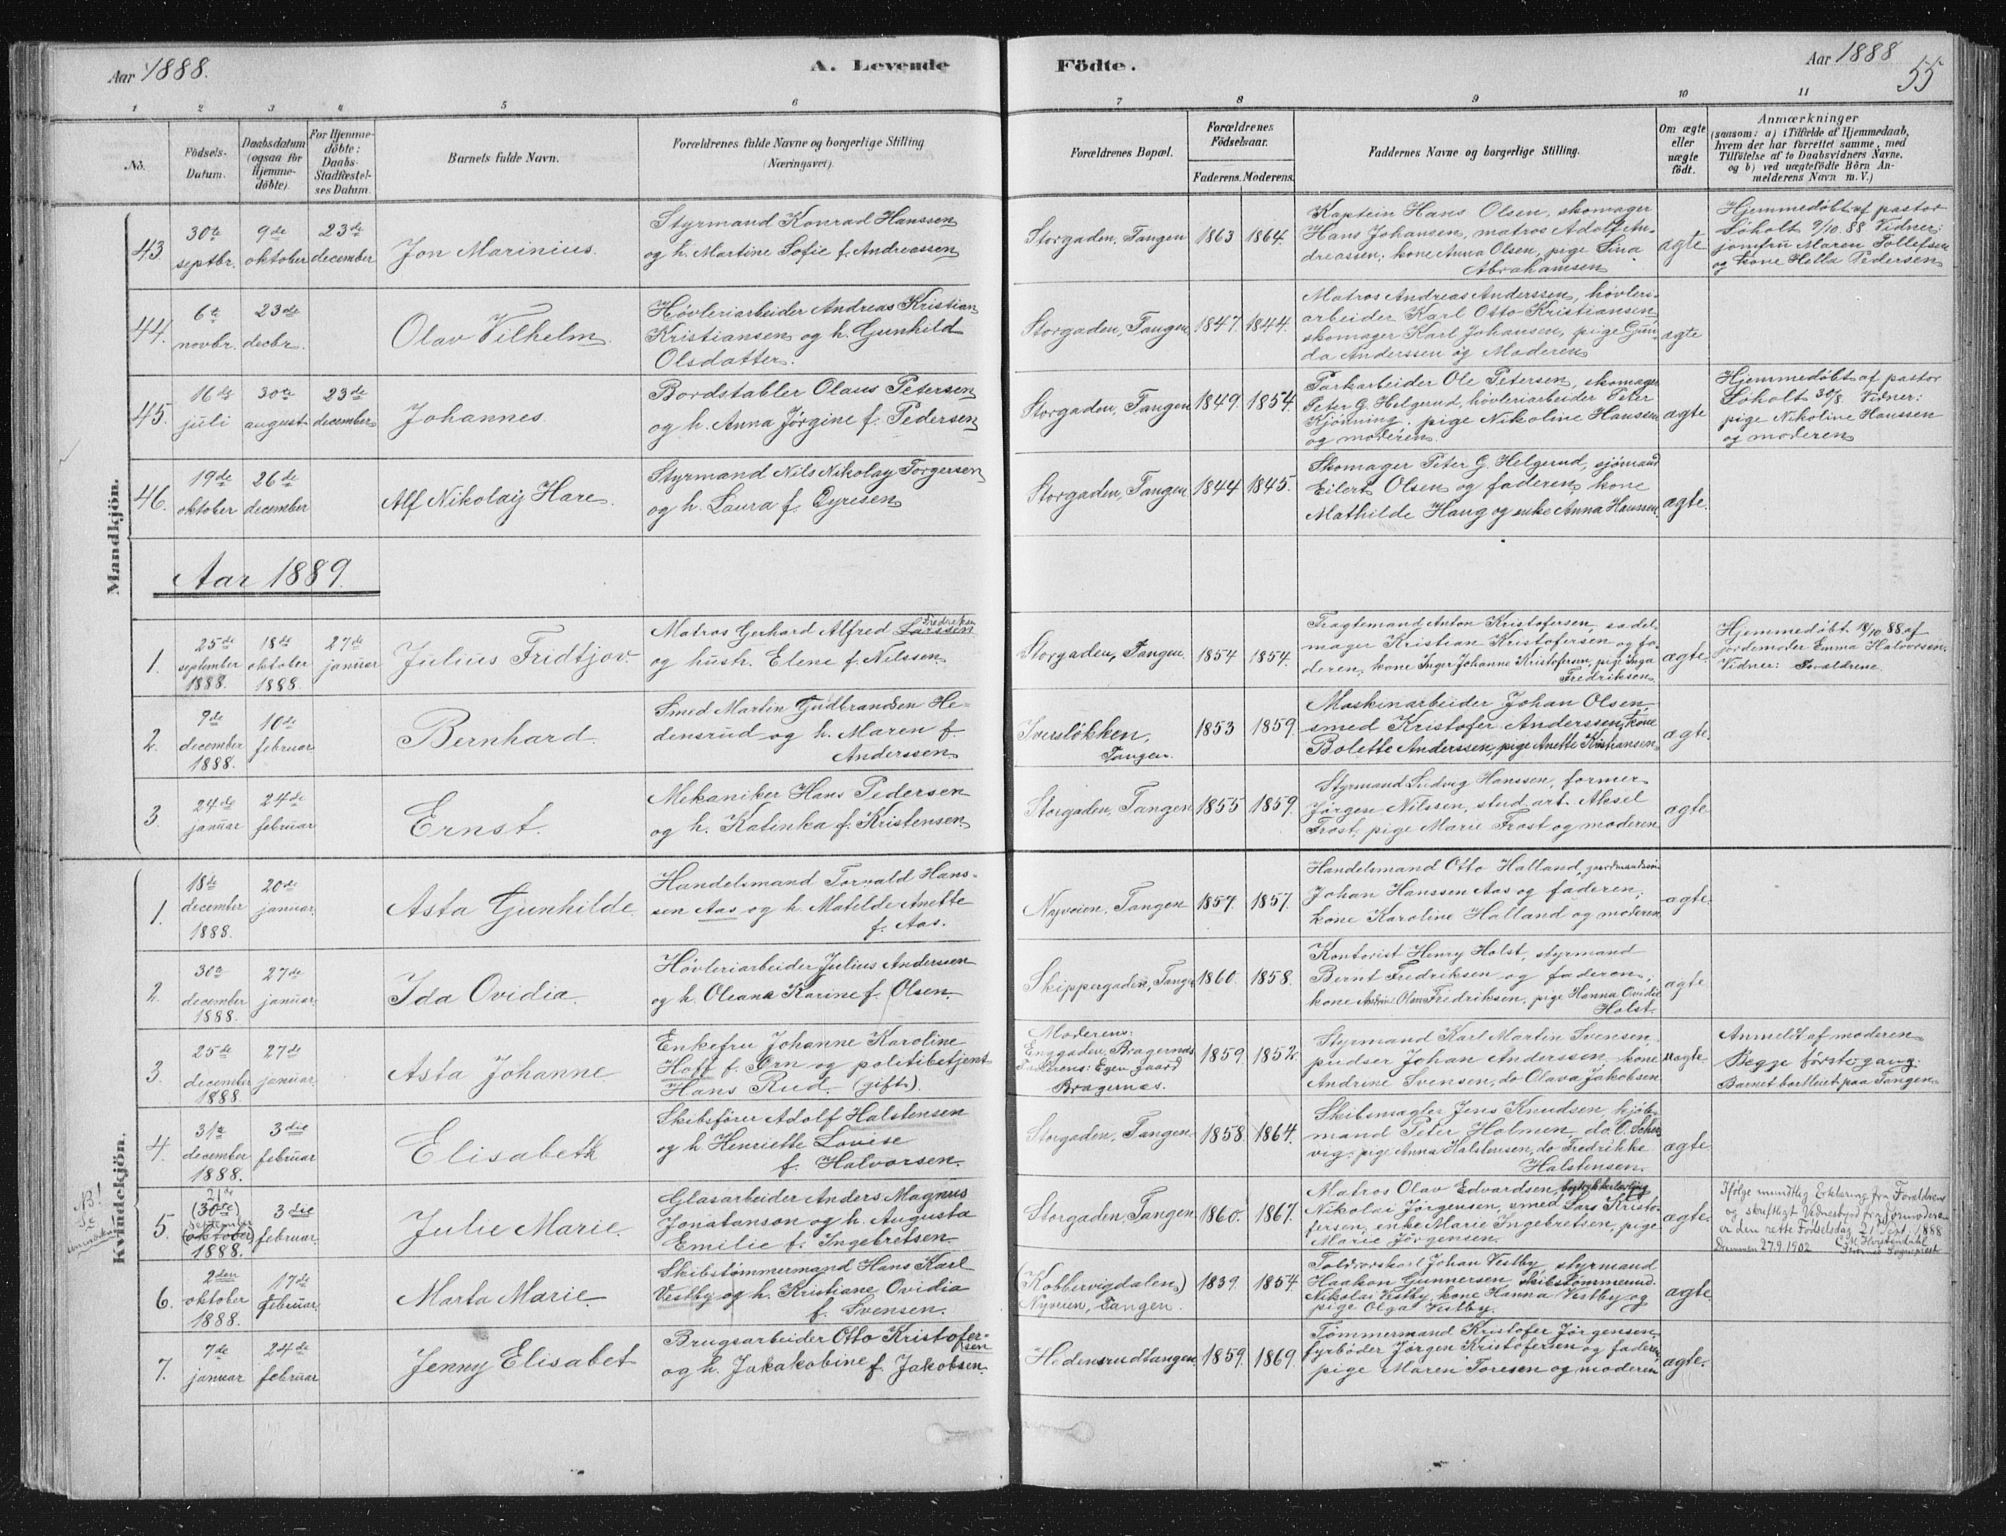 Aar 1888.
A. Levende Födte.
Aar 1888
55
1 2 3 4 5 6 7 8 9 10 11
No.
Födsels-Datum.
Daabsdatum (ogsaa for Hjemmedöbte).
For Hjemmedöbte: Daabs-Stadfæstelses Datum.
Barnets fulde Navn.
Forældrenes fulde Navne og borgerlige Stilling (Næringsvei).
Forældrenes Bopæl.
Forældrenes Födselsaar.
Faderens. Moderens.
Faddernes Navne og borgerlige Stilling.
Om ægte eller uægte födt.
Anmærkninger
(saasom: a) i Tilfælde af Hjemmedaab,
hvem der har forrettet samme, med
Tilföielse af to Daabsvidners Navne,
og b) ved uægtefödte Börn An-
melderens Navn m. V.)
Mandkjön.
43.
30te septbr.
9de oktober
23de december
Jon Marinius.
Styrmand Konrad Hanssen
og h. Martine Sofie f. Andreassen
Storgaden, Tangen
1863 1864.
Kaptein Hans Olsen, skomager
Hans Johansen, matros Adolf An-
dreassen; kone Anna Olsen, pige Lina
Abrahamsen
ægte
Hjemmedøbt af pastor
Søholt 9/10 88 Vidner:
jomfru Maren Tollefsen
og kone Hella Pedersen
44.
6te novbr.
23de decbr.
Olav Vilhelm.
Høvleriarbeider Andreas Kristian
Kristiansen og h. Gunhild
Olsdatter.
Storgaden, Tangen
1847. 1844.
Matros Andreas Anderssen, høvleri-
arbeider Karl Otto Kristiansen
skomager Karl Johansen, pige Gun-
da Anderssen og Moderen
ægte
45.
16de juli
30te august
23de december
Johannes.
Bordstabler Olaus Petersen
og h. Anna Jørgine f. Pedersen
Storgaden, Tangen
1849. 1854.
Parkarbeider Ole Petersen, skomager
Peter G. Helgerud, høvleriarbeider Peter
Kjønning, pige Nikoline Hansen
og moderen.
ægte
Hjemmedøbt af pastor
Søholt 30/8. Vidner:
pige Nikoline Hanssen
og moderen
46.
19de oktober
26de december
Alf Nikolaij Hare.
Styrmand Nils Nikolay Torgersen
og h. Laura f. Qyresen
Storgaden, Tangen
1844 1845.
Skomager Peter G. Helgerud, sjømand
Eilert Olsen og faderen, kone
Mathilde Haug og enke Anna Hanssen.
ægte.
Aar 1889.
1.
25de september 1888.
18de oktober 1888.
27de januar
Julius Fridtjov.
Matros Gerhard Alfred Larssen Fredriksen
og hustr. Elene f. Nilssen.
Storgaden, Tangen.
1854 1854.
Fragtemand Anton Kristofersen, sadel-
mager Kristian Kristofersen og fa-
deren, kone Inger Johanne Kristofersen, pige Inga
Fredriksen
ægte
Hjemmedøbt 18/10 88 af
jordemoder Emma Halvorsen.
Vidner: Forældrene.
2.
9de december 1888.
10de februar
Bernhard.
Smed Martin Gudbrandsen He-
densrud og h. Maren f.
Anderssen
Iversløkken,
Tangen.
1853 1859.
Maskinarbeider Johan Olsen,
smed Kristofer Anderssen, kone
Bolette Anderssen, pige Anette Kristiansen.
ægte.
3.
24de januar
24de februar
Ernst.
Mekaniker Hans Pedersen
og h. Katinka f. Kristensen
Storgaden, Tangen
1855 1859.
Styrmand Ludvig Hanssen, former
Jørgen Nilssen, stud. art. Aksel
Frost, pige Marie Frost og moderen
ægte
Kvindekjön.
1.
18de december 1888.
20de januar.
Asta Gunhilde.
Handelsmand Torvald Hans-
sen Aas og h. Matilde Anette
f. Aas.
Nyveien, Tangen
1857. 1857.
Handelsmand Otto Halland,
Johan Hanssen Aas og faderen;
kone Karoline Halland og moderen
ægte.
2.
30te december 1888.
27de januar.
Ida Ovidia.
Høvleriarbeider Julius Andersen
og h. Oleana Karine f. Olsen.
Skippergaden, Tangen
1860. 1858.
Kontorist Henry Holst, styrmand
Bernt Fredriksen og faderen;
kone Andrine Olsen Fredriksen, pige Hanna Ovidie
Holst.
ægte
3.
25de december 1888.
27de januar.
Asta Johanne
Enkefru Johanne Karoline
Hoff f. Ørn og politibetjent
Hans Rud. (gift).
Moderens:
Enggaden, Bragernes
Faderens: Egen gaard
Bragernes.
1859. 1852.
Styrmand Karl Martin Svensen,
pudser Johan Anderssen, kone
Andrine Svensen, do Olava Jakobsen
uægte
Anmeldt af moderen
Begge første gang.
Barnet bortleiet paa Tangen.
4.
31te december 1888.
3die februar
Elisabeth
Skibsfører Adolf Halstensen
og h Henriette Lovise
f. Halvorsen.
Storgaden, Tangen.
1858. 1864.
Skibsmægler Jens Knudsen, kjøb-
mand Peter Holmen, do O. Schar
vig, pige Anna Halstensen, do Fredrikke
Halstensen.
ægte
NB!
Se anmærkn.!
5.
21de (30te) september (oktober) 1888.
3die februar.
Julie Marie.
Glasarbeider Anders Magnus
Jonatanson og h. Augusta
Emilie f. Ingebretsen.
Storgaden, Tangen
1860. 1867.
Matros Olav Edvardsen, bogtrykkerlærling
Nikolai Jørgensen, smed Lars Kristo-
fersen, enke Marie Ingebretsen, pige
Marie Jørgensen.
ægte
Ifølge mundtlig Erklæring fra Forældrene
og skriftligt Vidnesbyrd fra Jordmoderen
er den rette Fødselsdag 21 Sept. 1888
Drammen 27.9.1902
6.
2den oktober 1888.
17de februar.
Marta Marie.
Skibstømmermand Hans Karl
Vestby og h. Kristiane Ovidia
f. Svensen.
(Kobbervigdalen)
Nyveien, Tangen.
1839. 1854.
Toldvorskarl Johan Vestby, styrmand
Haakon Gunnersen, skibstømmermd.
Nikolai Vestby, kone Hanna Vestby og
pige Olga Vestby.
ægte
7.
7de januar
24de februar
Jenny Elisabet
Brugsarbeider Otto Kristofer-
sen
og h. Jakakobine f. Jakobsen.
Hedensrudtangen.
1859. 1869.
Tømmermand Kristofer Jørgensen,
fyrbøder Jørgen Kristofersen og faderen,
pige Maren Toresen og moderen
ægte.